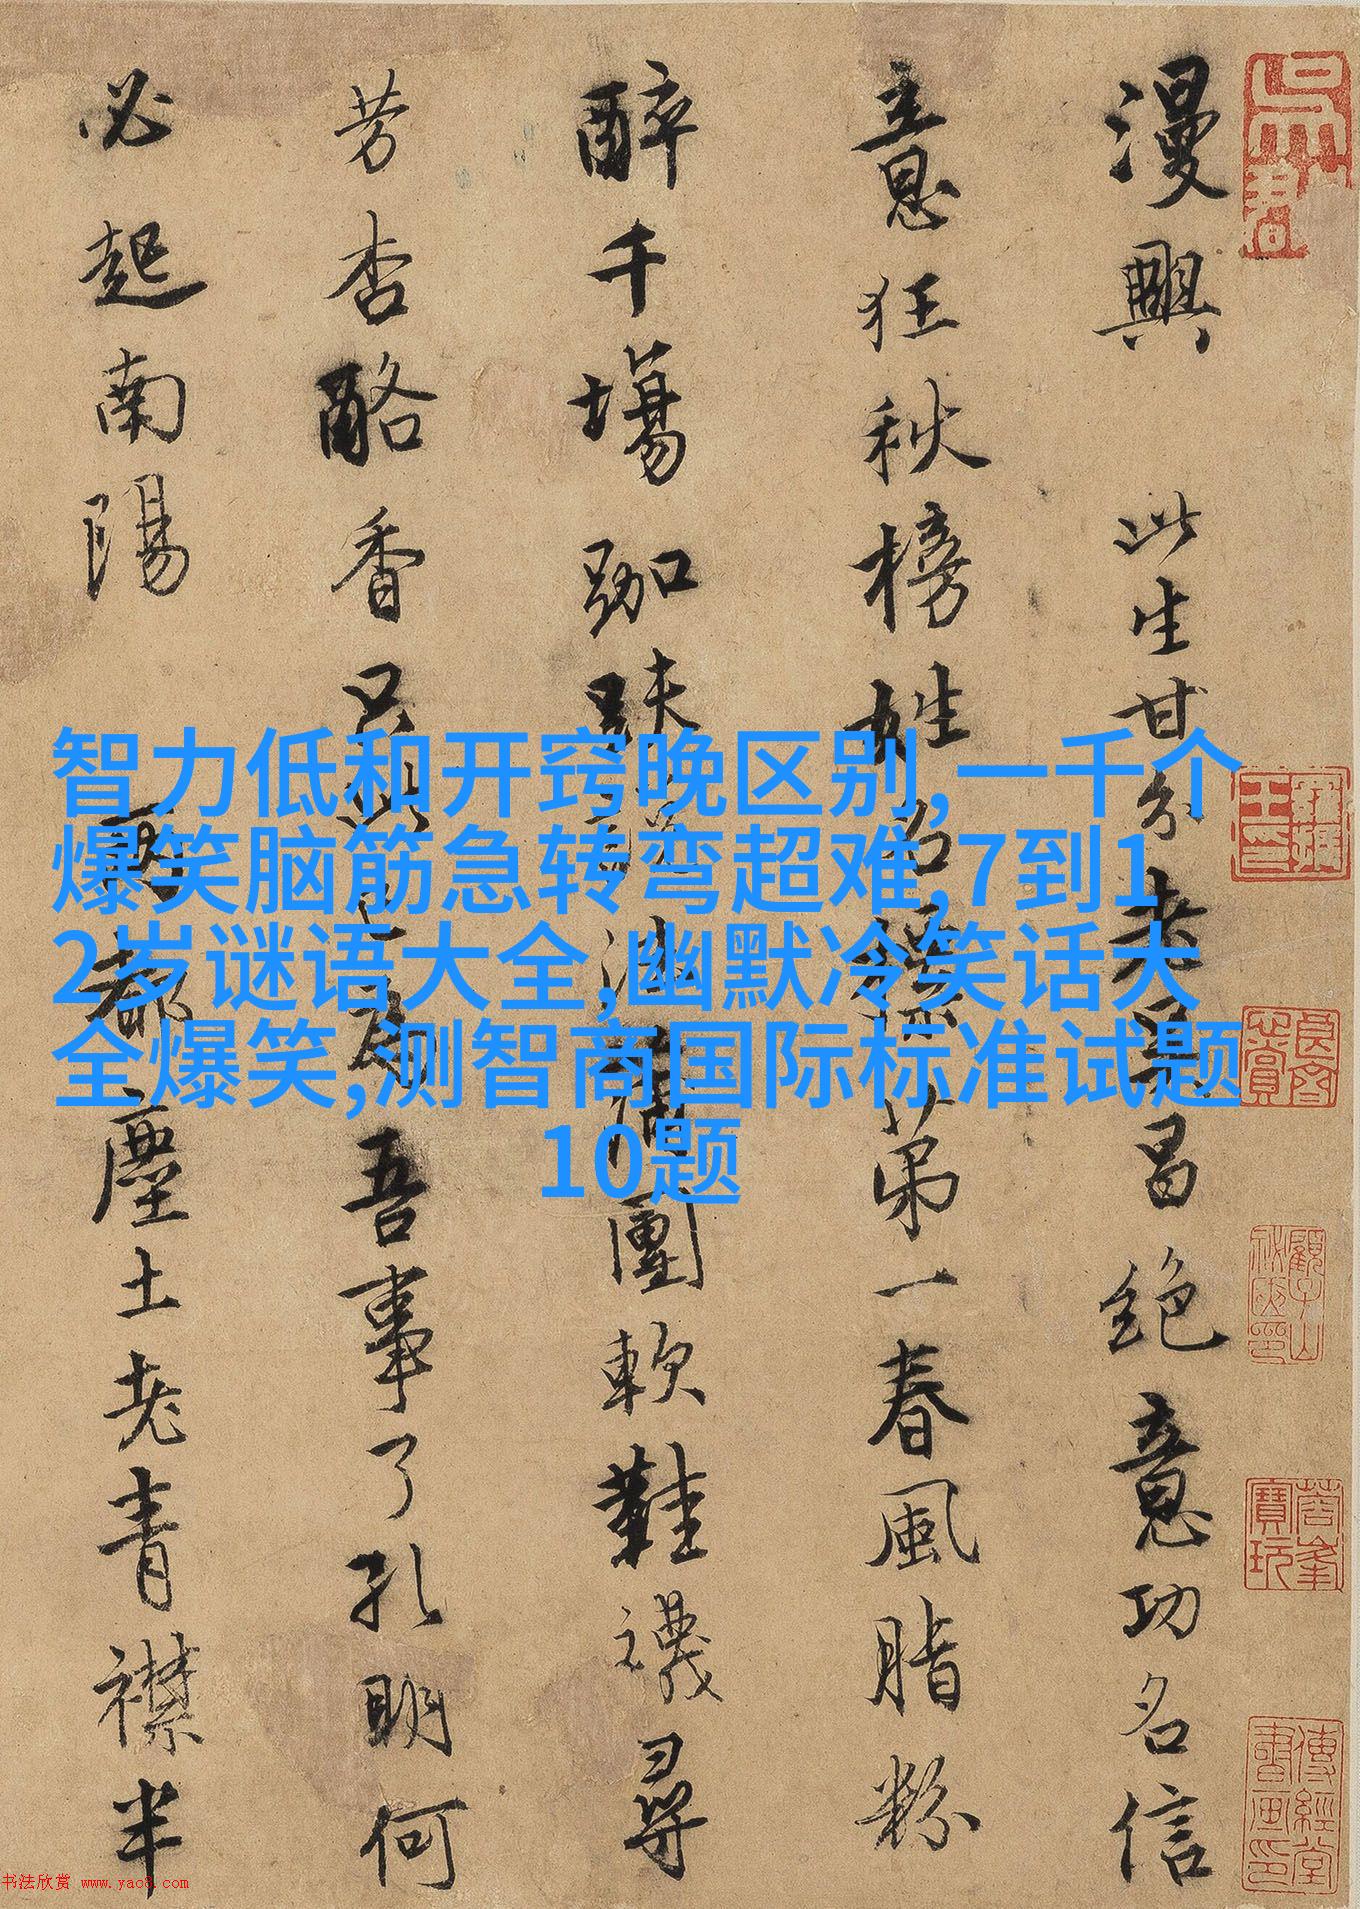 漫興 此生甘分老吴昌絕意功名信
意狂秋榜姓名標第一春風脂粉
醉千場跏趺 團軟鞋襪尋
芳杏酪香只此 吾事了孔明何
必起南陽 兩都塵土老青襟半
智力低和开窍晚区别,一千个
爆笑脑筋急转弯超难,7到1
2岁谜语大全,幽默冷笑话大
全爆笑,测智商国际标准试题
10题
书法欣赏 www.yac8.com